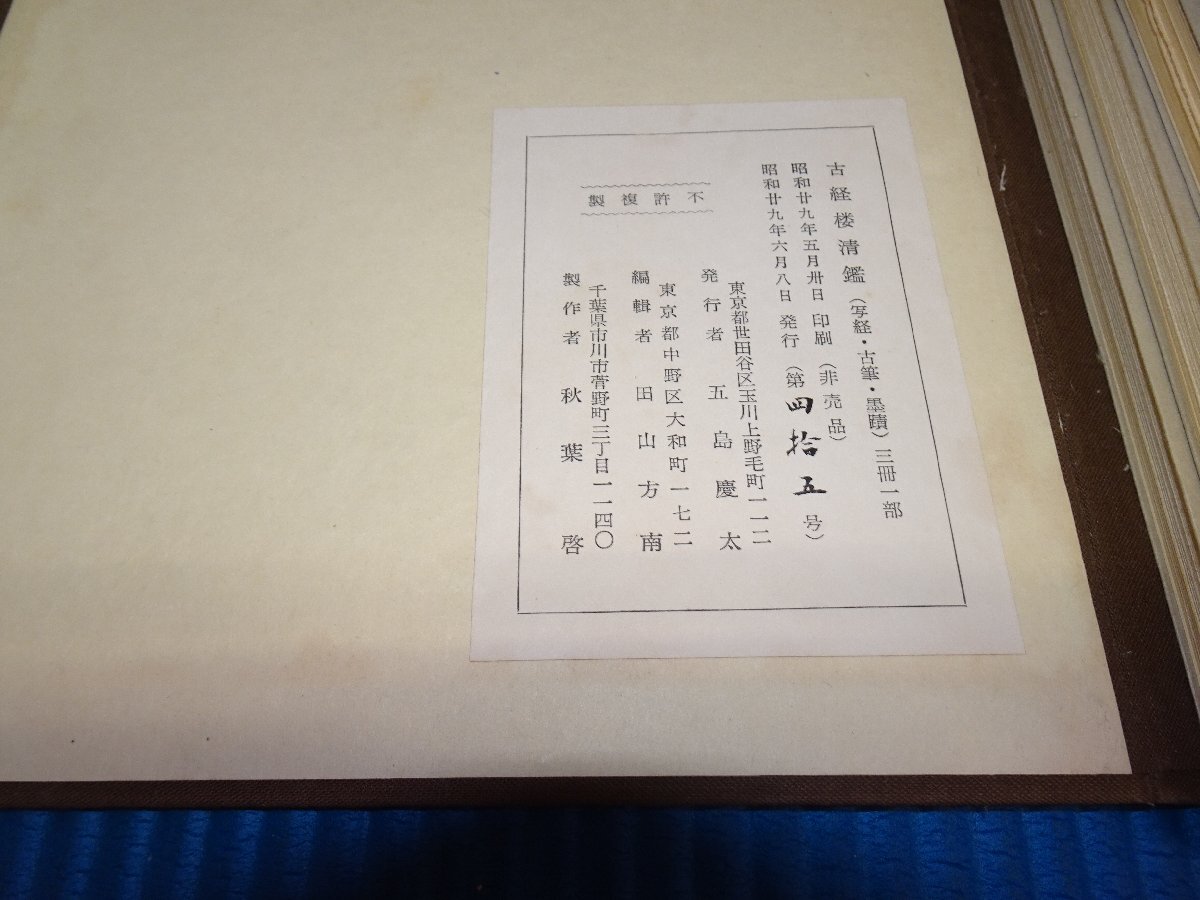 古経楼清鑑（写経・古筆・墨蹟）三冊一部
昭和廿九年五月卅日 印刷（非売品）
昭和廿九年六月八日 発行（第四拾五号）
不許複製
東京都世田谷区玉川上野毛町一一二
発行者 五島慶太
東京都中野区大和町一七二
編輯者 田山方南
千葉県市川市菅野町三丁目一一四〇
製作者 秋葉啓